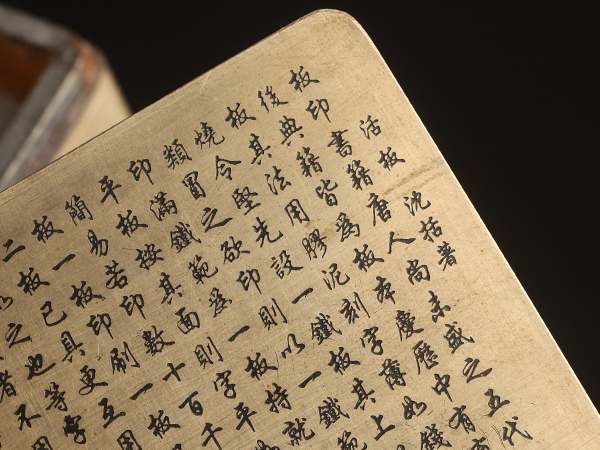 活板 沈括著
板印書籍唐人尚未盛之五代
後典籍皆為板本慶曆中有
板其法用膠泥刻字薄如錢
燒令堅先設一鐵板其上
類冒之欲印則以一鐵範
印滿鐵範為一板持就
平板按其面則字平
簡易若印數十百千
板一板印刷一板
二板已具更互用
之也等字
者不